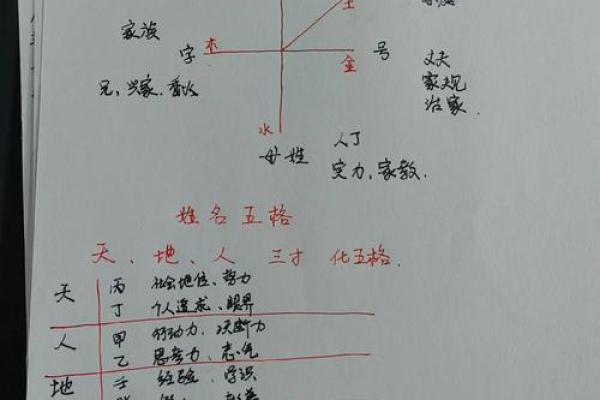 土
家族
字 木 金 号
兄,兴家.香火
丈夫
家规
治家.
水
母姓
人丁
实力,家教.
姓名五格
天、地、人 三才 化五格.
天 丙 社会地位、势力
丁 个人造诚、眼界
人 甲 行动力、决断力
乙 思考力、志气
地 壬 经验、学识